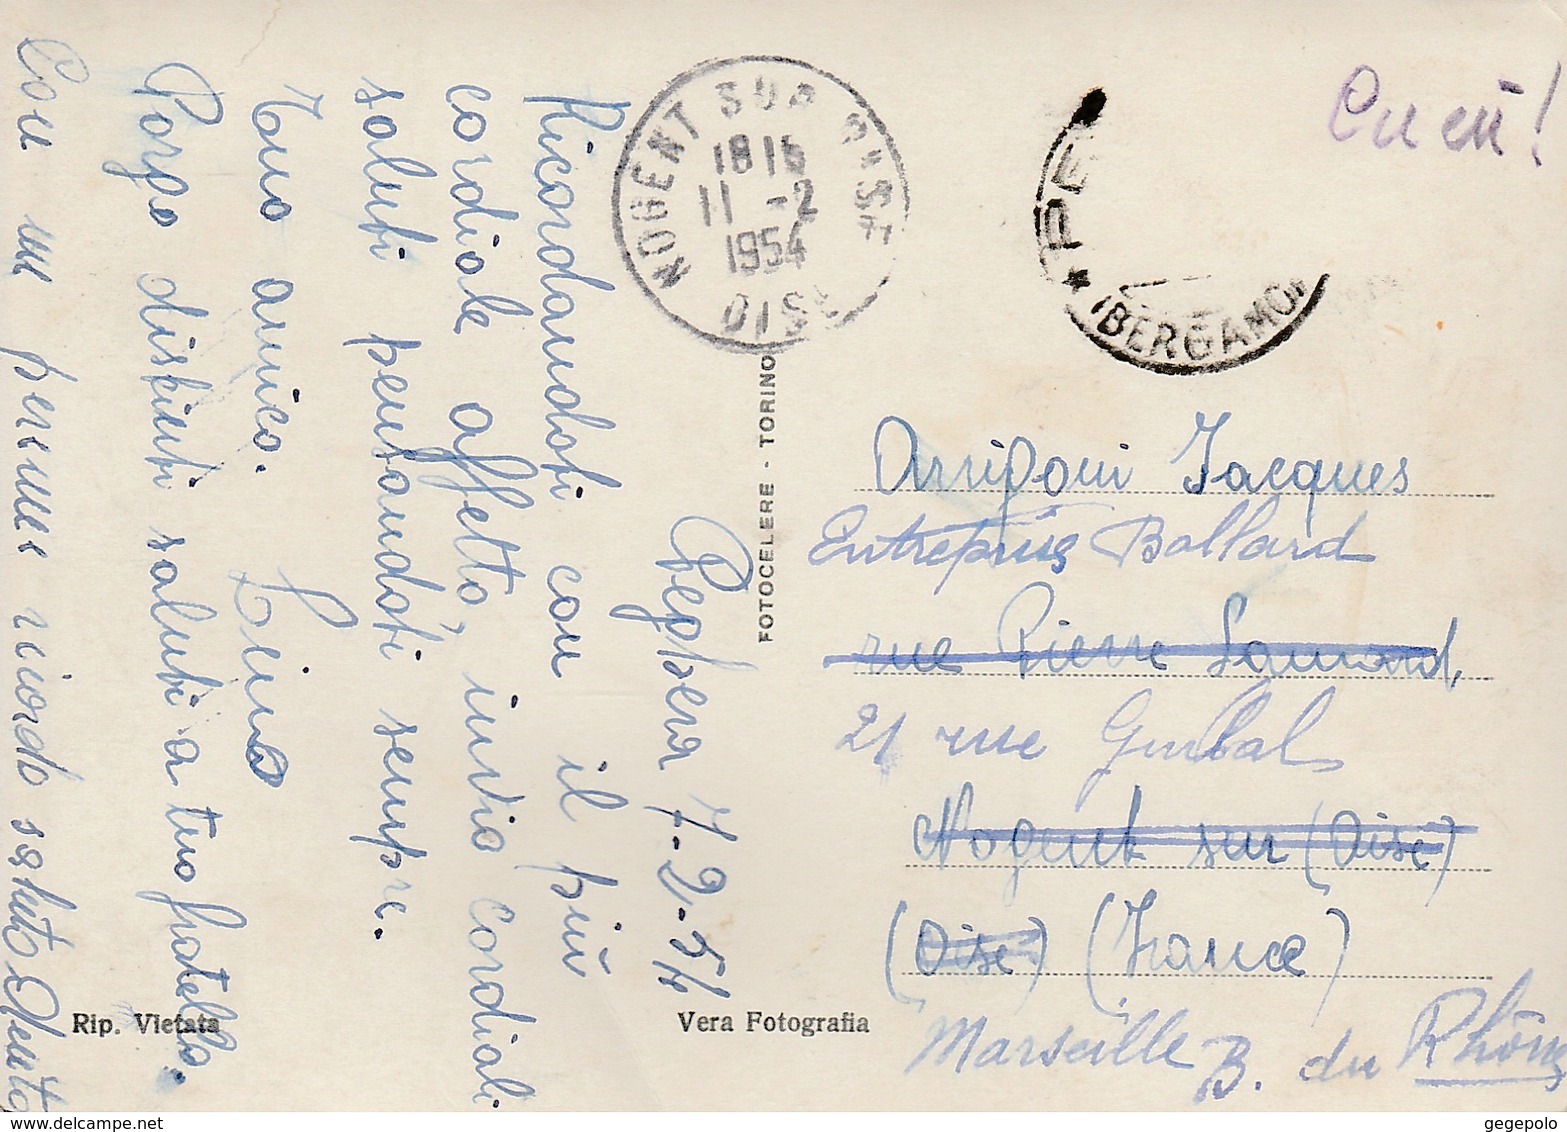 Peghera 7-2-54
Ricordandoti con il più
cordiale affetto, invio cordiali
saluti pensandoti sempre.
Tuo amico.
Lino
Porgo distinti saluti a tuo fratello.
Con un perenne ricordo saluto
NOGENT SUR OISE
1815
11 -2
1954
OISE
PE
* (BERGAMO)
FOTOCELERE - TORINO
Arrigoni Jacques
Entreprise Ballard
rue Pierre Semard,
21 rue Guibal
Nogent sur (Oise)
(Oise) (France)
Marseille B. du Rhône
Rip. Vietata
Vera Fotografia
gegepolo